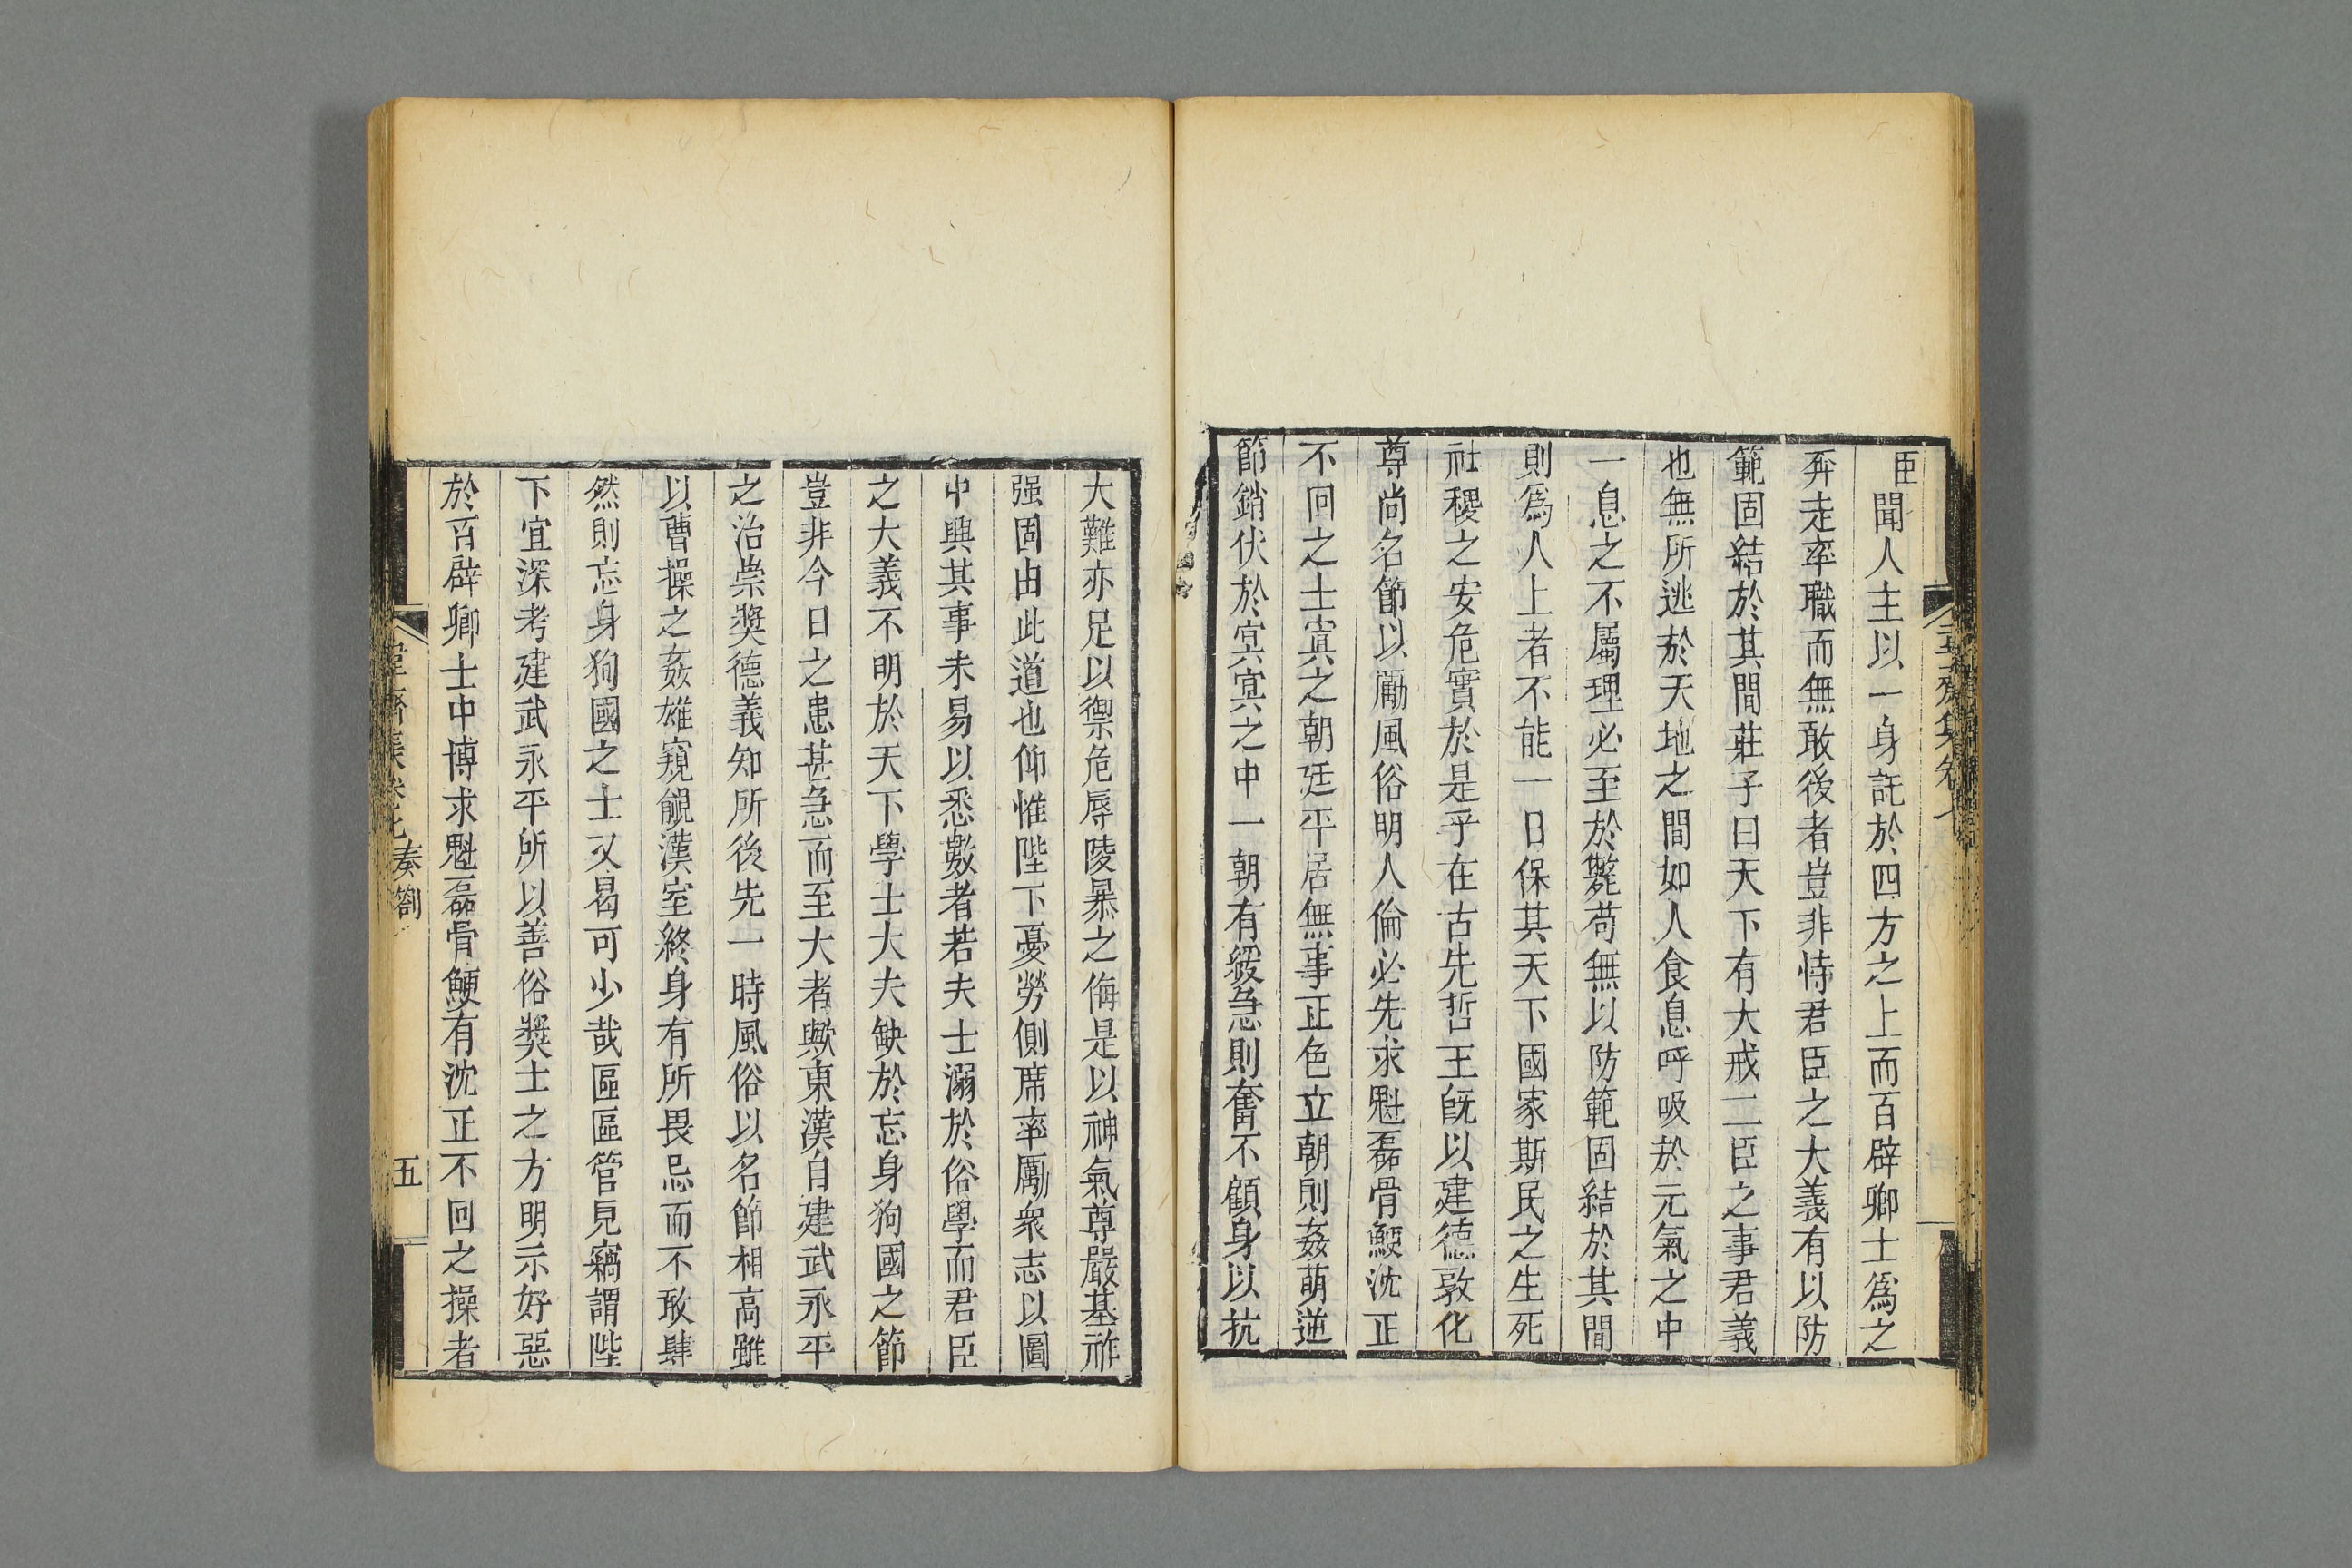 臣聞人主以一身託於四方之上而百辟卿士爲之
奔走率職而無敢後者豈非恃君臣之大義有以防
範固結於其間莊子曰天下有大戒二臣之事君義
也無所逃於天地之間如人食息呼吸於元氣之中
一息之不屬理必至於斃苟無以防範固結於其間
則爲人上者不能一日保其天下國家斯民之生死
社稷之安危實於是乎在古先哲王旣以建德敦化
尊尚名節以勵風俗明人倫必先求魁磊骨鯁沈正
不回之士寘之朝廷平居無事正色立朝則姦萌逆
節銷伏於冥冥之中一朝有緩急則奮不顧身以抗
大難亦足以禦危辱陵暴之侮是以神氣尊嚴基祚
强固由此道也仰惟陛下憂勞側席率厲衆志以圖
中興其事未易以悉數者若夫士溺於俗學而君臣
之大義不明於天下學士大夫缺於忘身狥國之節
豈非今日之患甚急而至大者歟東漢自建武永平
之治崇奬德義知所後先一時風俗以名節相高雖
以曹操之姦雄窺覦漢室終身有所畏忌而不敢肆
然則忘身狥國之士又曷可少哉區區管見竊謂陛
下宜深考建武永平所以善俗奬士之方明示好惡
於百辟卿士中博求魁磊骨鯁有沈正不回之操者
韋齋集卷七 奏劄 五